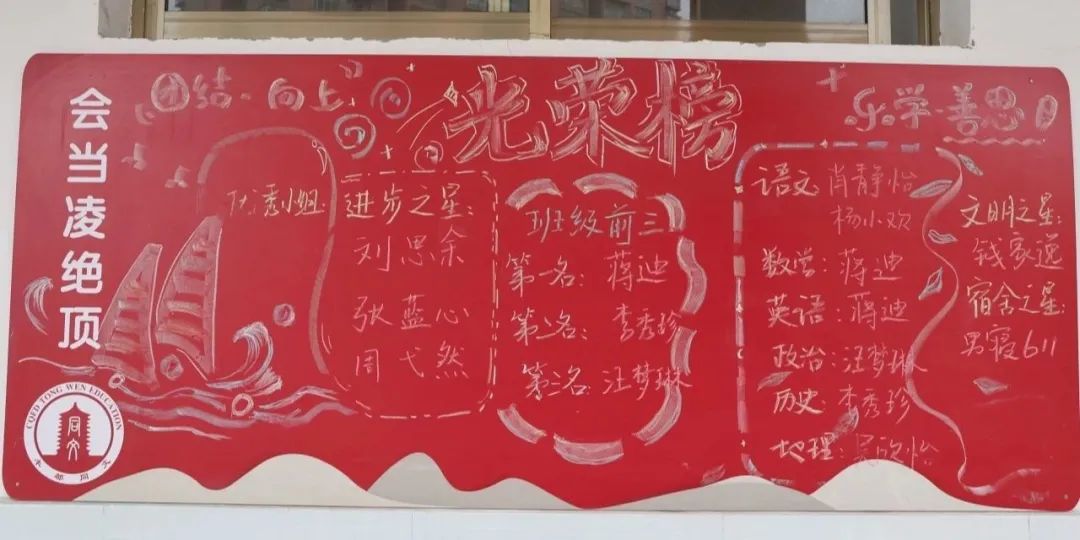 会当凌绝顶
团结·向上
光荣榜
乐学·善思
优秀小组
进步之星:
刘思余
张蓝心
周弋然
班级前三
第一名: 蒋迪
第二名: 李秀珍
第三名: 汪梦琳
语文 肖静怡
杨小欢
数学: 蒋迪
英语: 蒋迪
政治: 汪梦琳
历史 李秀珍
地理: 吴欣怡
文明之星:
钱家逸
宿舍之星:
男寝611
COED TONG WEN EDUCATION
同文